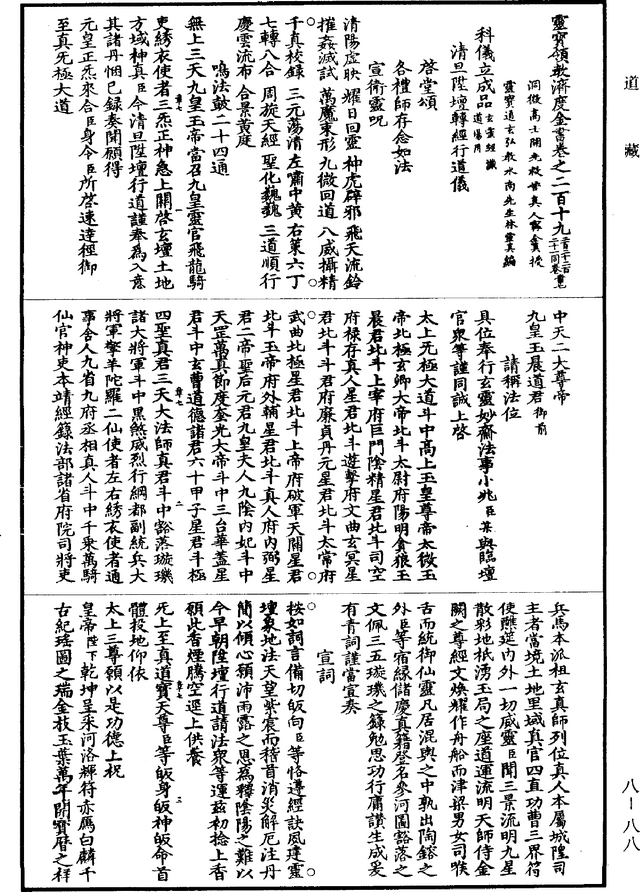 道藏
八—八八
靈寶領教濟度金書卷之二百十九
洞微高士開光救苦真人甯全真授
靈寶通玄弘教水南先生林靈真編
科儀立成品
清旦陞壇轉經行道儀
啓堂頌
各禮師存念如法
宣衛靈呪
清陽虛映　耀日回靈　神虎辟邪　飛天流鈴
摧姦滅試　萬魔束形　九微回道　八威攝精
千真校錄　三元蕩清　左嘯中黃　右策六丁
七轉八合　周旋天經　聖化巍巍　三道順行
慶雲流布　合景黃庭
鳴法鼓二十四通
無上三天九皇玉帝當召九皇靈官飛龍騎
吏綉衣使者三炁正神急上關啓玄壇土地
方域神真臣今清旦陞壇行道謹奉爲入意
其諸丹悃已錄奏聞願得
元皇正炁來合臣身令臣所啓速達徑御
至真无極大道
中天二大尊帝
九皇玉晨道君御前
請稱法位
具位奉行玄靈妙齋法事小兆臣某與臨壇
官衆等謹同誠上啓
太上无極大道斗中高上玉皇尊帝太微玉
帝北極玄卿大帝北斗太尉府陽明貪狼玉
晨君北斗上宰府巨門陰精星君北斗司空
府祿存真人星君北斗遊擊府文曲玄冥星
君北斗斗君府廉貞丹元星君北斗太常府
武曲北極星君北斗上帝府破軍天關星君
北斗玉帝府外輔星君北斗真人府內弼星
君二帝聖后元君九皇夫人九陰內妃斗中
天罡萬真節度奎光大帝斗中三台華蓋星
君斗中玄曹道德諸君六十甲子星君斗極
四聖真君三天大法師真君斗中豁落璇璣
諸大將軍斗中黑煞威烈行綱都副統兵大
將軍擎羊陀羅二仙使者左右綉衣使者通
事舍人九省九府丞相真人斗中千乘萬騎
仙官神吏本靖經籙法部諸省府院司將吏
兵馬本派祖玄真師列位真人本屬城隍司
主者當境土地里域真官四直功曹三界符
使醮筵內外一切威靈臣聞三景流明九星
散彩地祇湧玉局之座道運流明天師侍金
闕之尊經文煥耀作舟船而津梁男女司喉
舌而統御仙靈凡居混輿之中孰出陶鎔之
外臣等宿緣儲慶真籍登名參河圖豁落之
文佩三五璇璣之籙勉思功行庸讃生成爰
有青詞謹當宣奏
宣詞
按如詞言備切皈向臣等恪遵經訣風建靈
壇象地法天望紫宸而稽首消災解厄注丹
簡以傾心願沛雨露之恩爲釋陰陽之難以
今早朝陞壇行道請法衆等運茲初捻上香
願此香煙騰空逕上供養
无上至真道寶天尊臣等皈身皈神皈命首
體投地仰依
太上三尊願以是功德上祝
皇帝陛下乾坤呈采河洛輝符亦鴈白麟千
古紀瑤圖之瑞金枝玉葉萬年開寶曆之祥